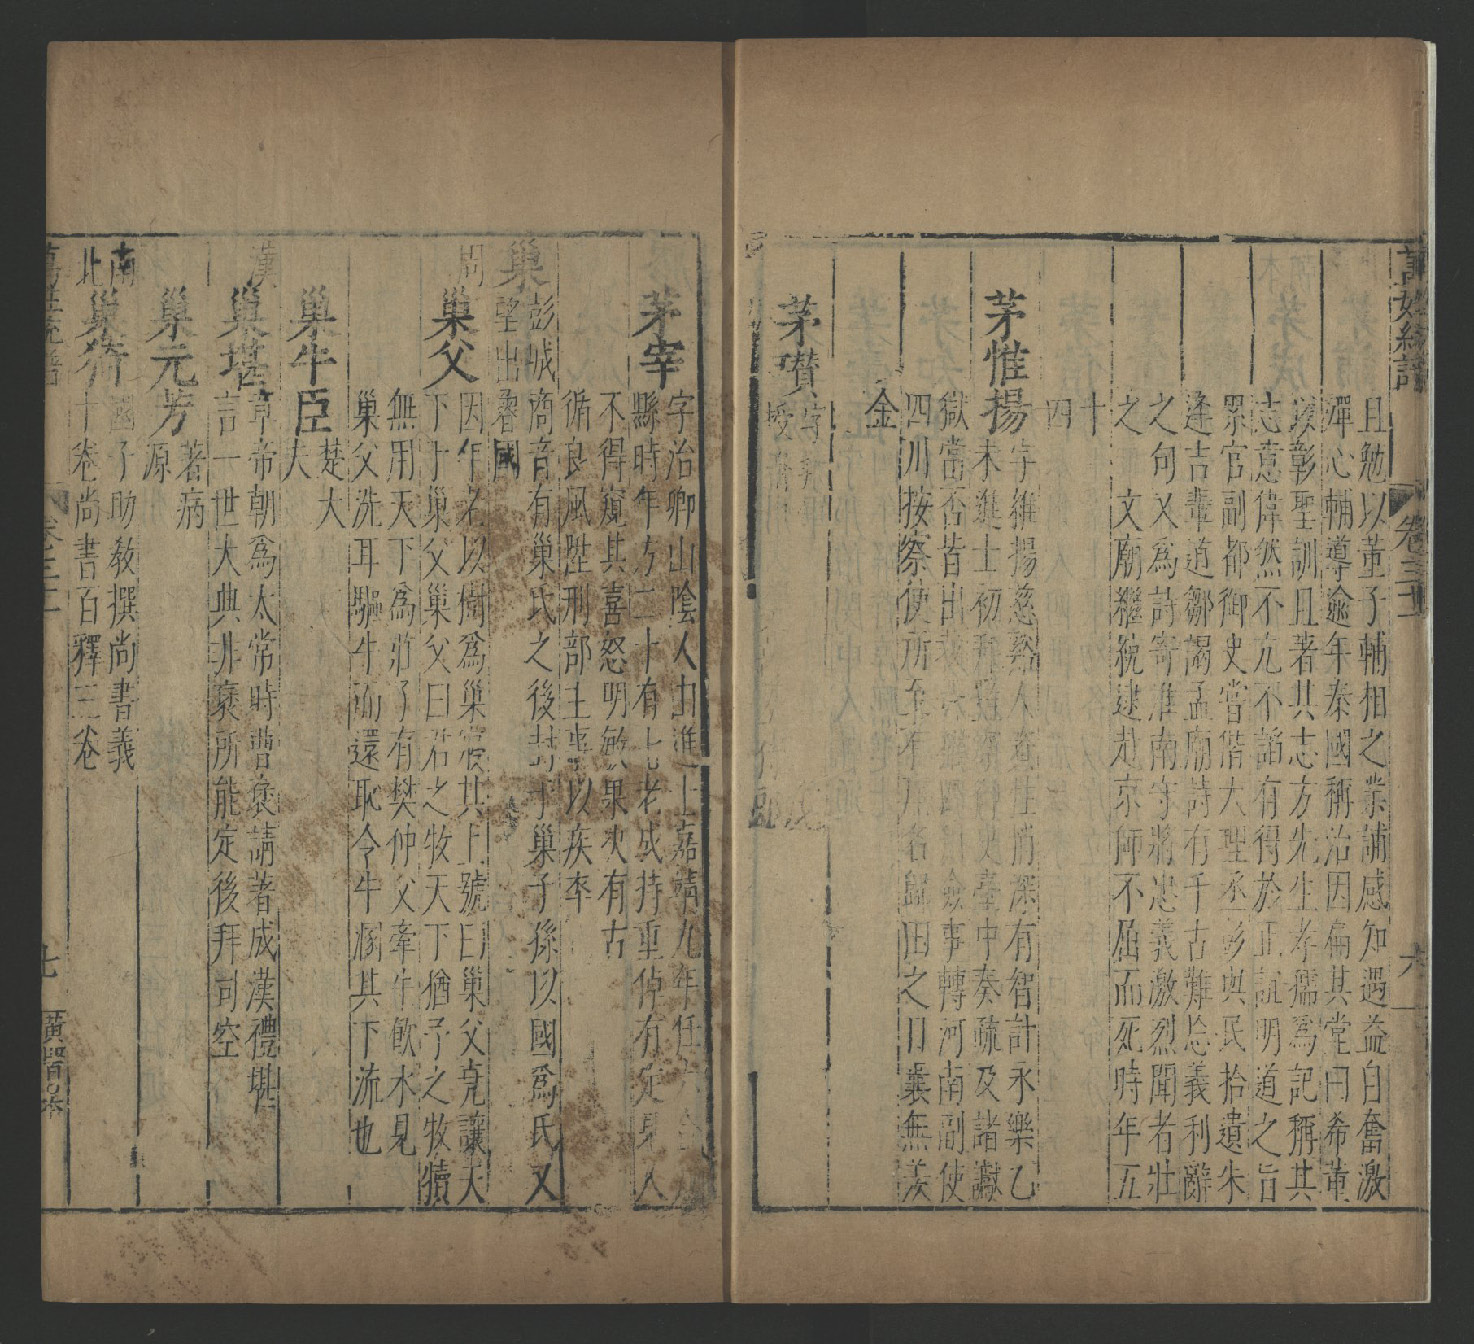 萬姓統譜
卷三十二
六
且勉以董子輔相之業誦感知遇益自奮激
殫心輔導逾年秦國稱治因扁其堂曰希董
以彰聖訓且著其志方先生孝孺為記稱其
志意偉然不亢不謟有得於正誼明道之旨
累官副都御史當偕大理丞彭與民拾遺朱
逢吉輩道鄒謁孟廟詩有千古難忘義利辭
之句又為詩寄淮南守將忠義激烈聞者壯
之 文廟繼統逮赴京師不屈而死時年五
十
四
茅惟揚
字維揚慈谿人資性
深有智計永樂乙
未進士初拜監察御史臺中奏疏及諸讞
獄當否皆出
僉事轉河南副使
四川按察使所至
名歸田之日橐無羨
金
茅瓚
茅宰
字治卿山陰人由進士嘉靖九年任
縣時年方二十有七老成持重倬有定見人
不得窺其喜怒明敏果决有古
循良風陞刑部主事以疾卒
巢
彭城
望出魯國
商音有巢氏之後封于巢子孫以國為氏又
周
巢父
因年老以樹為巢寢其上號曰巢父堯讓天
下于巢父巢父曰君之牧天下猶予之牧犢
無用天下為莊子有樊仲父牽牛飲水見
巢父洗耳驅牛而還恥令牛溷其下流也
巢牛臣
楚大
夫
漢
巢堪
章帝朝為太常時曹褒請著成漢禮堪
言一世大典非褒所能定後拜司空
巢元芳
著病
源
南
北
巢猗
國子助教撰尚書義
十卷尚書百釋三卷
萬姓統譜
卷三十二
七